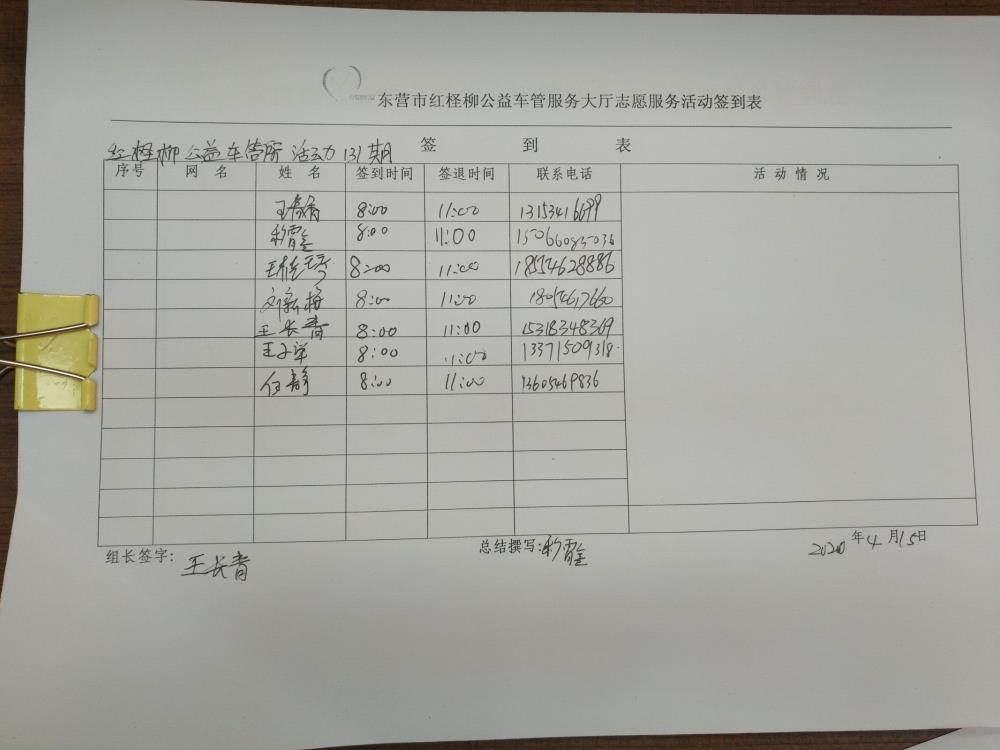 东营市红柽柳公益车管服务大厅志愿服务活动签到表
签 到 表
红柽柳公益车管所活动131期
序号 网名 姓名 签到时间 签退时间 联系电话 活动情况
8:00 11:00 13153416699
8:00 11:00 15066085036
8:00 11:00 18554628886
8:00 11:00 18054617660
王长青 8:00 11:00 15318348369
8:00 11:00 13371509318
何静 8:00 11:00 13605469836
组长签字: 王长青 总结撰写: 2020年4月15日